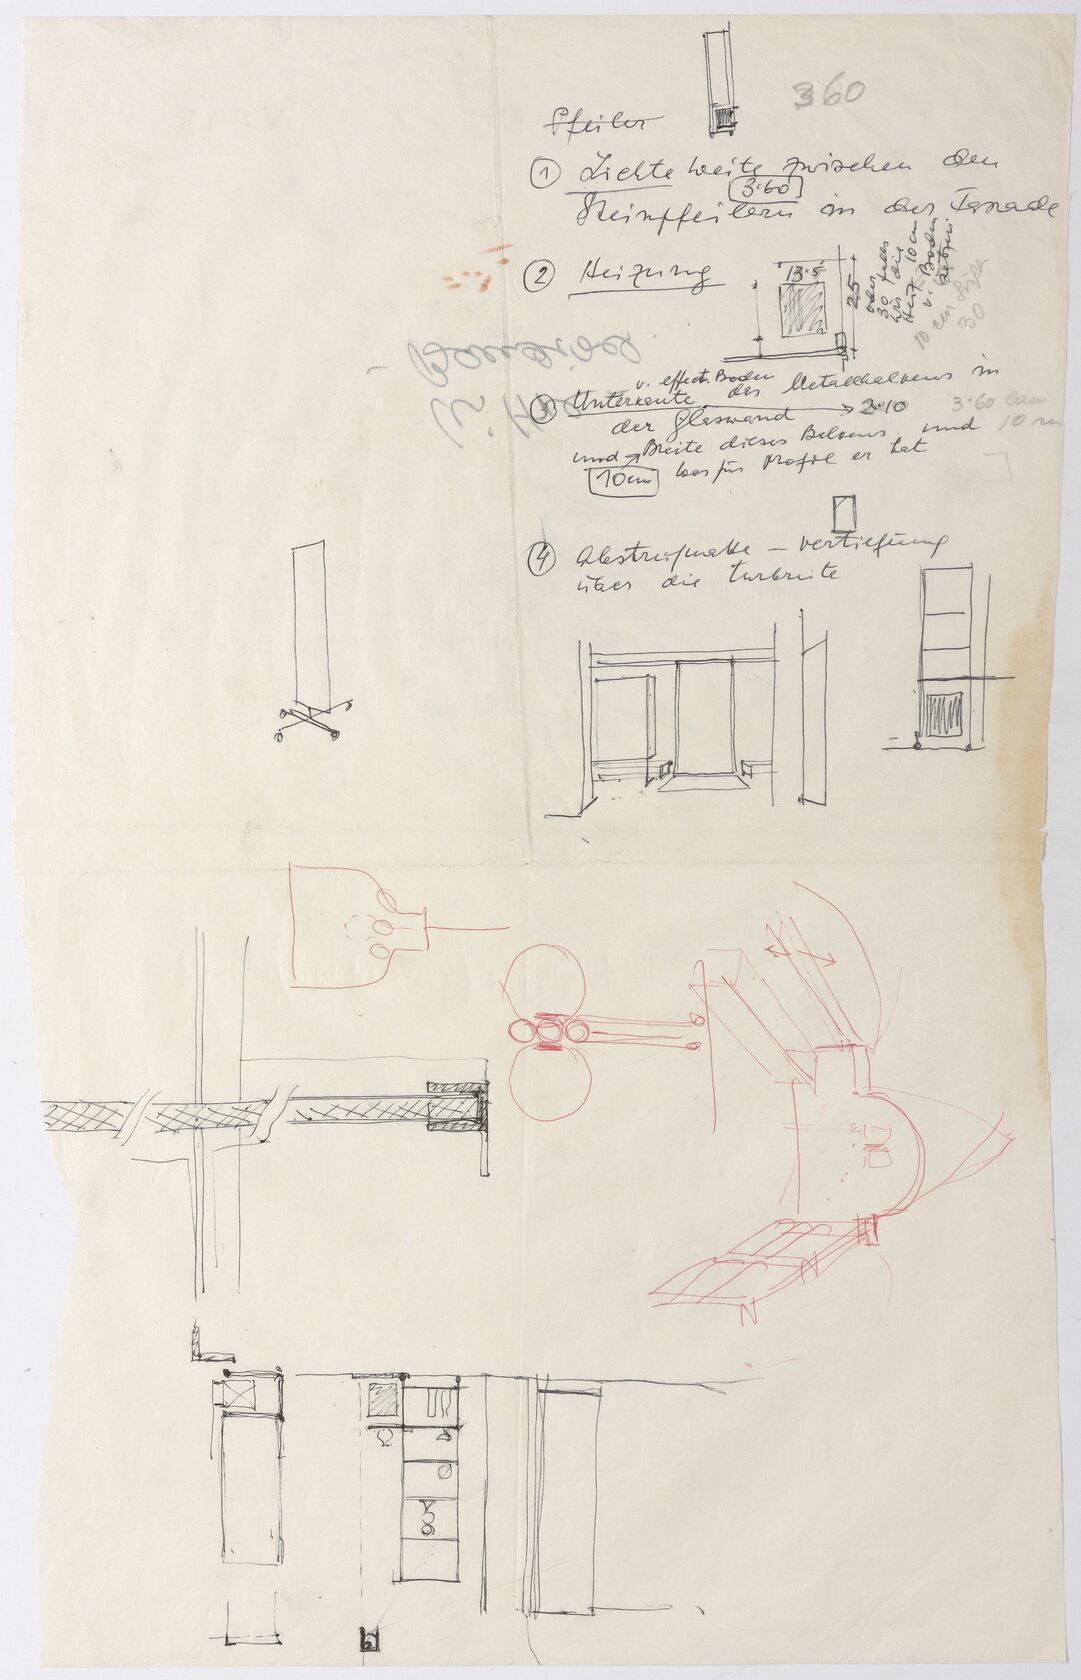 360
Pfeiler
① Lichte Weite zwischen den
3·60
Steinpfeilern in der Fassade
② Heizung
13·5
25
oder
30 falls
was die
10 cm
v. Boden
10 cm
30
v. effect. Boden
③ Unterkante des Metallbalkens in
der Glaswand → 2·10
3·60
10 cm
und Breite dieses Balkens und
10 cm was für Profil er hat
④ Abstreifmatte – Vertiefung
über die Türbreite